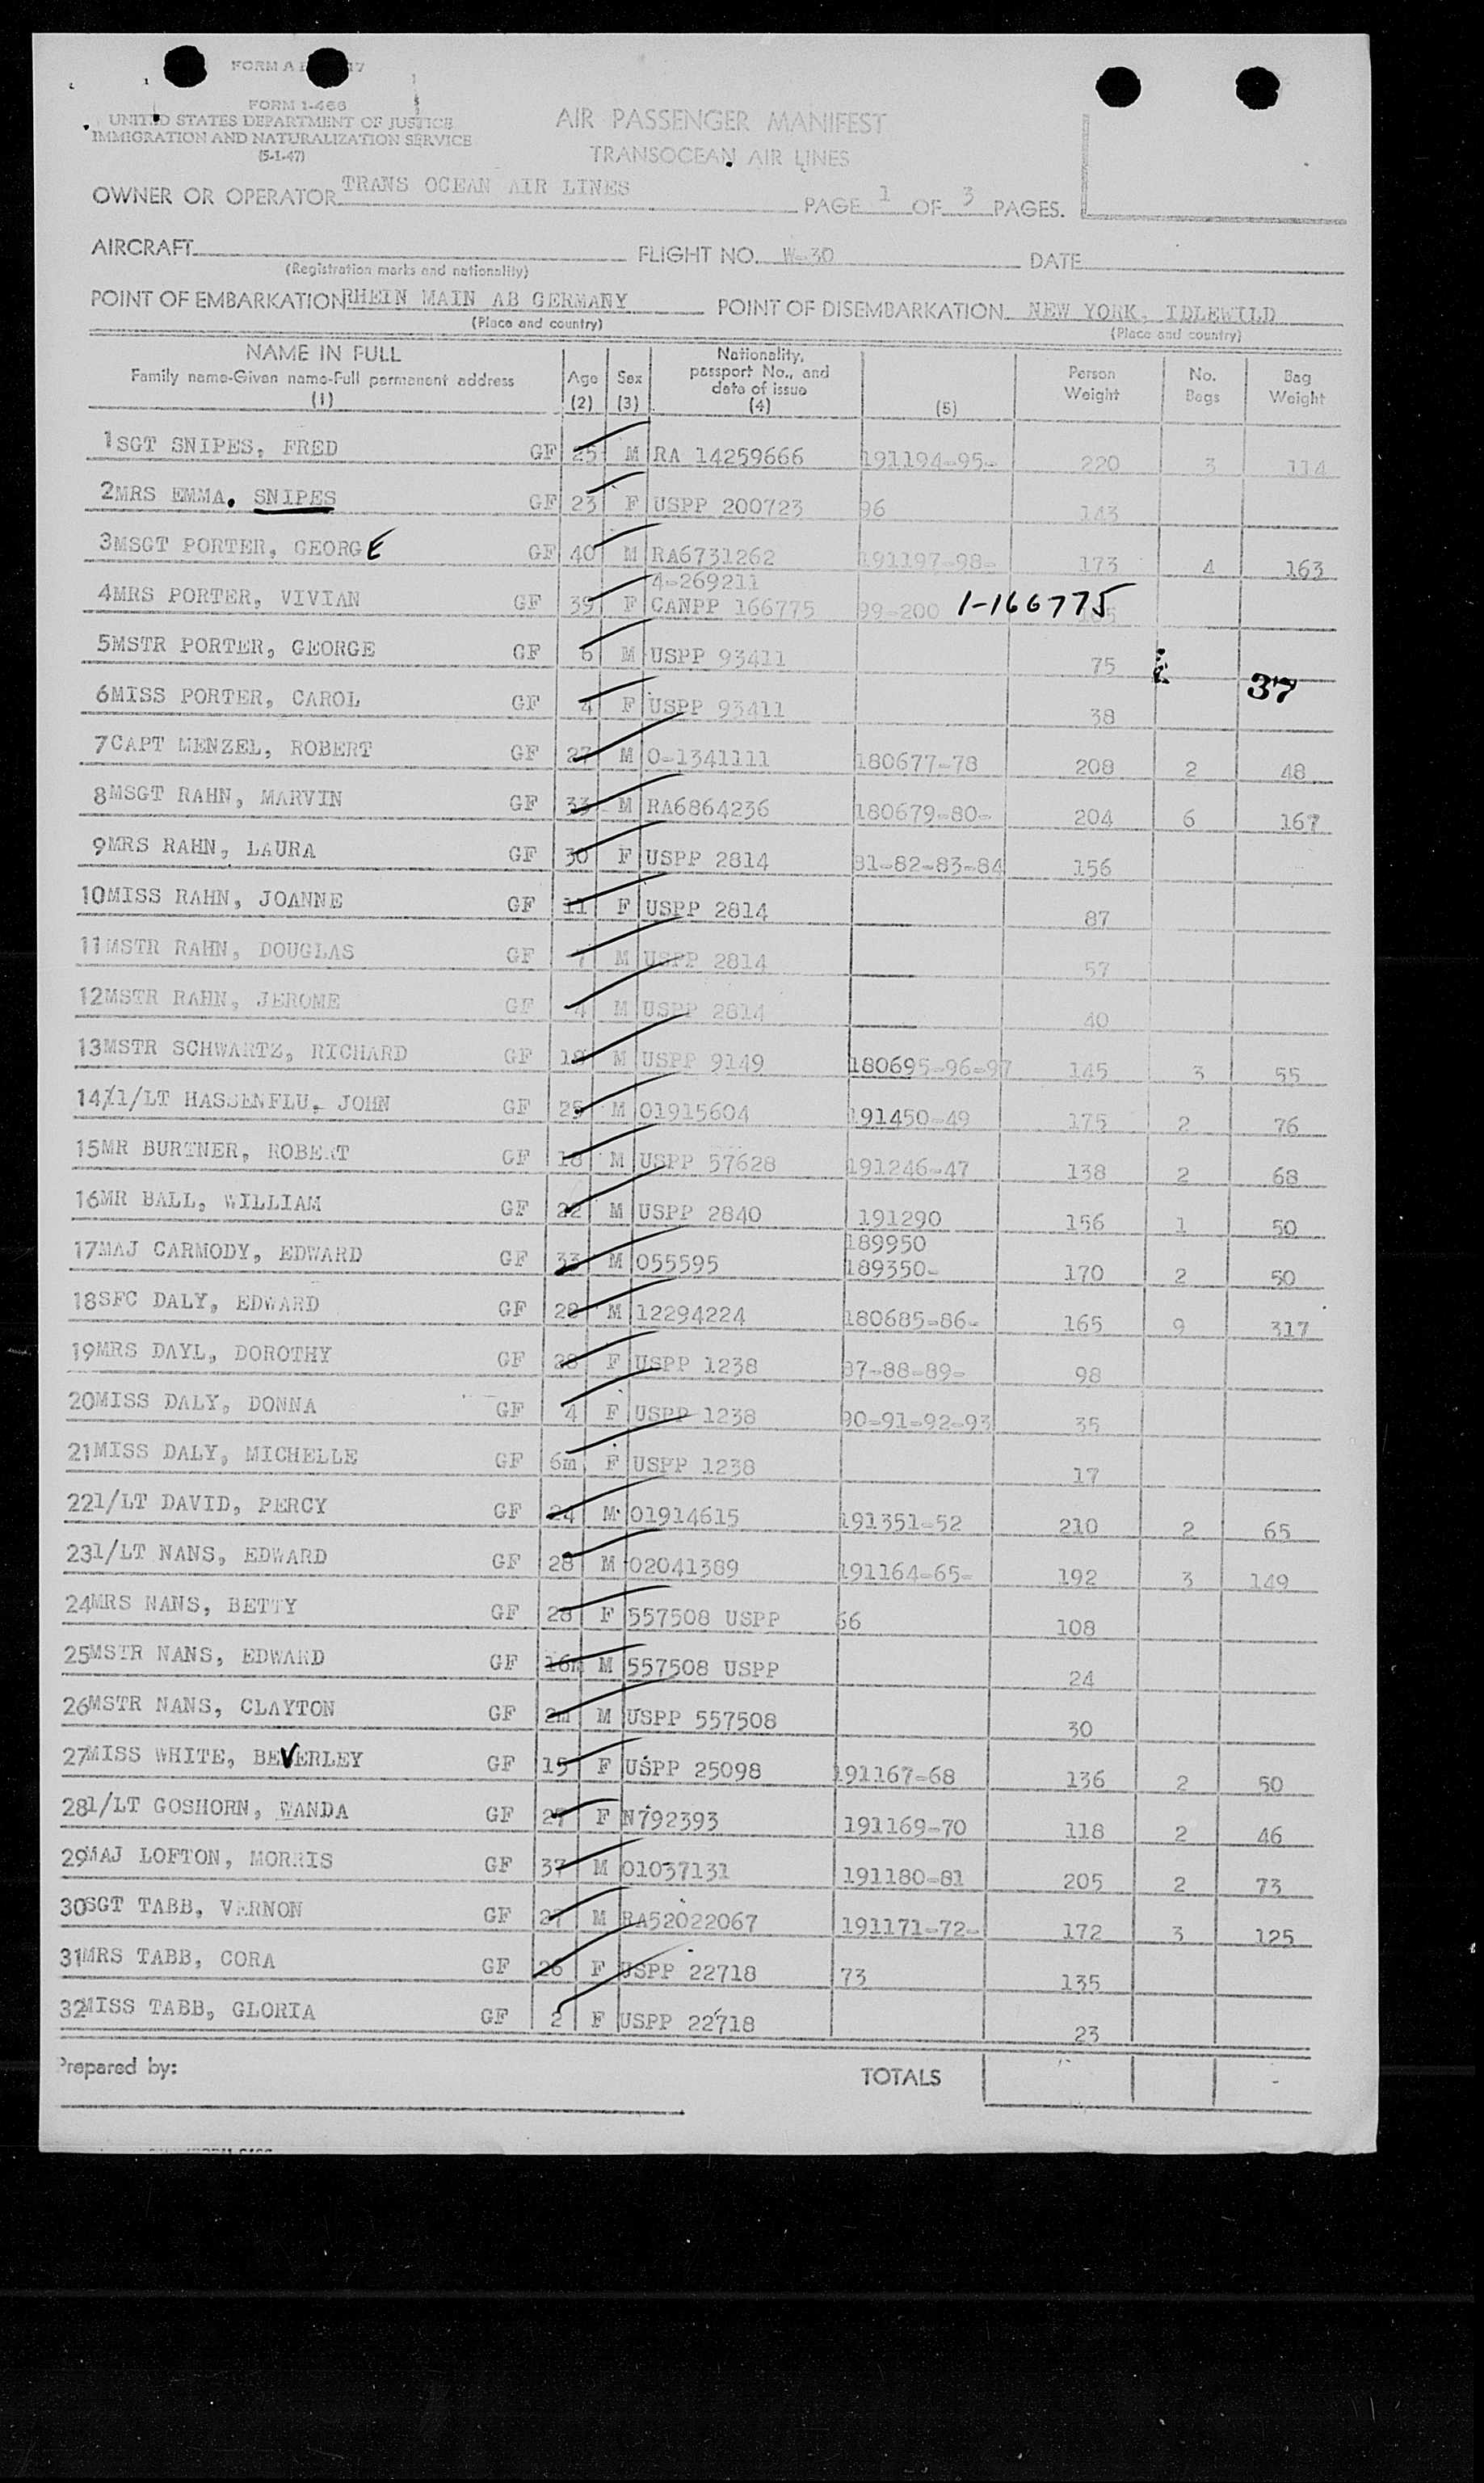 FORM 1-466
UNITED STATES DEPARTMENT OF JUSTICE
IMMIGRATION AND NATURALIZATION SERVICE
(5-1-47)
AIR PASSENGER MANIFEST
TRANSOCEAN AIR LINES
OWNER OR OPERATOR TRANS OCEAN AIR LINES PAGE 1 OF 3 PAGES.
AIRCRAFT FLIGHT NO. W-30 DATE
(Registration marks and nationality)
POINT OF EMBARKATION RHEIN MAIN AB GERMANY POINT OF DISEMBARKATION NEW YORK, IDLEWILD
(Place and country) (Place and country)
NAME IN FULL Family name-Given name-Full permanent address (1) Age (2) Sex (3) Nationality, passport No., and date of issue (4) (5) Person Weight No. Bags Bag Weight
1 SGT SNIPES, FRED GF 25 M RA 14259666 191194-95- 220 3 114
2 MRS EMMA. SNIPES GF 23 F USPP 200723 96 143
3 MSGT PORTER, GEORGE GF 40 M RA6731262 191197-98- 173 4 163
4-269211
4 MRS PORTER, VIVIAN GF 39 F CANPP 166775 99-200 1-166775
5 MSTR PORTER, GEORGE GF 6 M USPP 93411 75
37
6 MISS PORTER, CAROL GF 4 F USPP 93411 38
7 CAPT MENZEL, ROBERT GF 27 M O-1341111 180677-78 208 2 48
8 MSGT RAHN, MARVIN GF 33 M RA6864236 180679-80- 204 6 167
9 MRS RAHN, LAURA GF 30 F USPP 2814 81-82-83-84 156
10 MISS RAHN, JOANNE GF 11 F USPP 2814 87
11 MSTR RAHN, DOUGLAS GF 7 M USPP 2814 57
12 MSTR RAHN, JEROME GF 4 M USPP 2814 40
13 MSTR SCHWARTZ, RICHARD GF 18 M USPP 9149 180695-96-97 145 3 55
14 1/LT HASSENFLU, JOHN GF 25 M 01915604 191450-49 175 2 76
15 MR BURTNER, ROBERT GF 18 M USPP 57628 191246-47 138 2 68
16 MR BALL, WILLIAM GF 22 M USPP 2840 191290 156 1 50
189950
17 MAJ CARMODY, EDWARD GF 33 M 055595 189350- 170 2 50
18 SFC DALY, EDWARD GF 28 M 12294224 180685-86- 165 9 317
19 MRS DAYL, DOROTHY GF 28 F USPP 1238 87-88-89- 98
20 MISS DALY, DONNA GF 4 F USPP 1238 90-91-92-93 35
21 MISS DALY, MICHELLE GF 6m F USPP 1238 17
22 1/LT DAVID, PERCY GF 24 M 01914615 191351-52 210 2 65
23 1/LT NANS, EDWARD GF 28 M 02041389 191164-65- 192 3 149
24 MRS NANS, BETTY GF 28 F 557508 USPP 66 108
25 MSTR NANS, EDWARD GF 16m M 557508 USPP 24
26 MSTR NANS, CLAYTON GF 2m M USPP 557508 30
27 MISS WHITE, BEVERLEY GF 15 F USPP 25098 191167-68 136 2 50
28 1/LT GOSHORN, WANDA GF 27 F N792393 191169-70 118 2 46
29 MAJ LOFTON, MORRIS GF 37 M 01037131 191180-81 205 2 73
30 SGT TABB, VERNON GF 27 M RA52022067 191171-72- 172 3 125
31 MRS TABB, CORA GF 26 F USPP 22718 73 135
32 MISS TABB, GLORIA GF 2 F USPP 22718 23
Prepared by: TOTALS